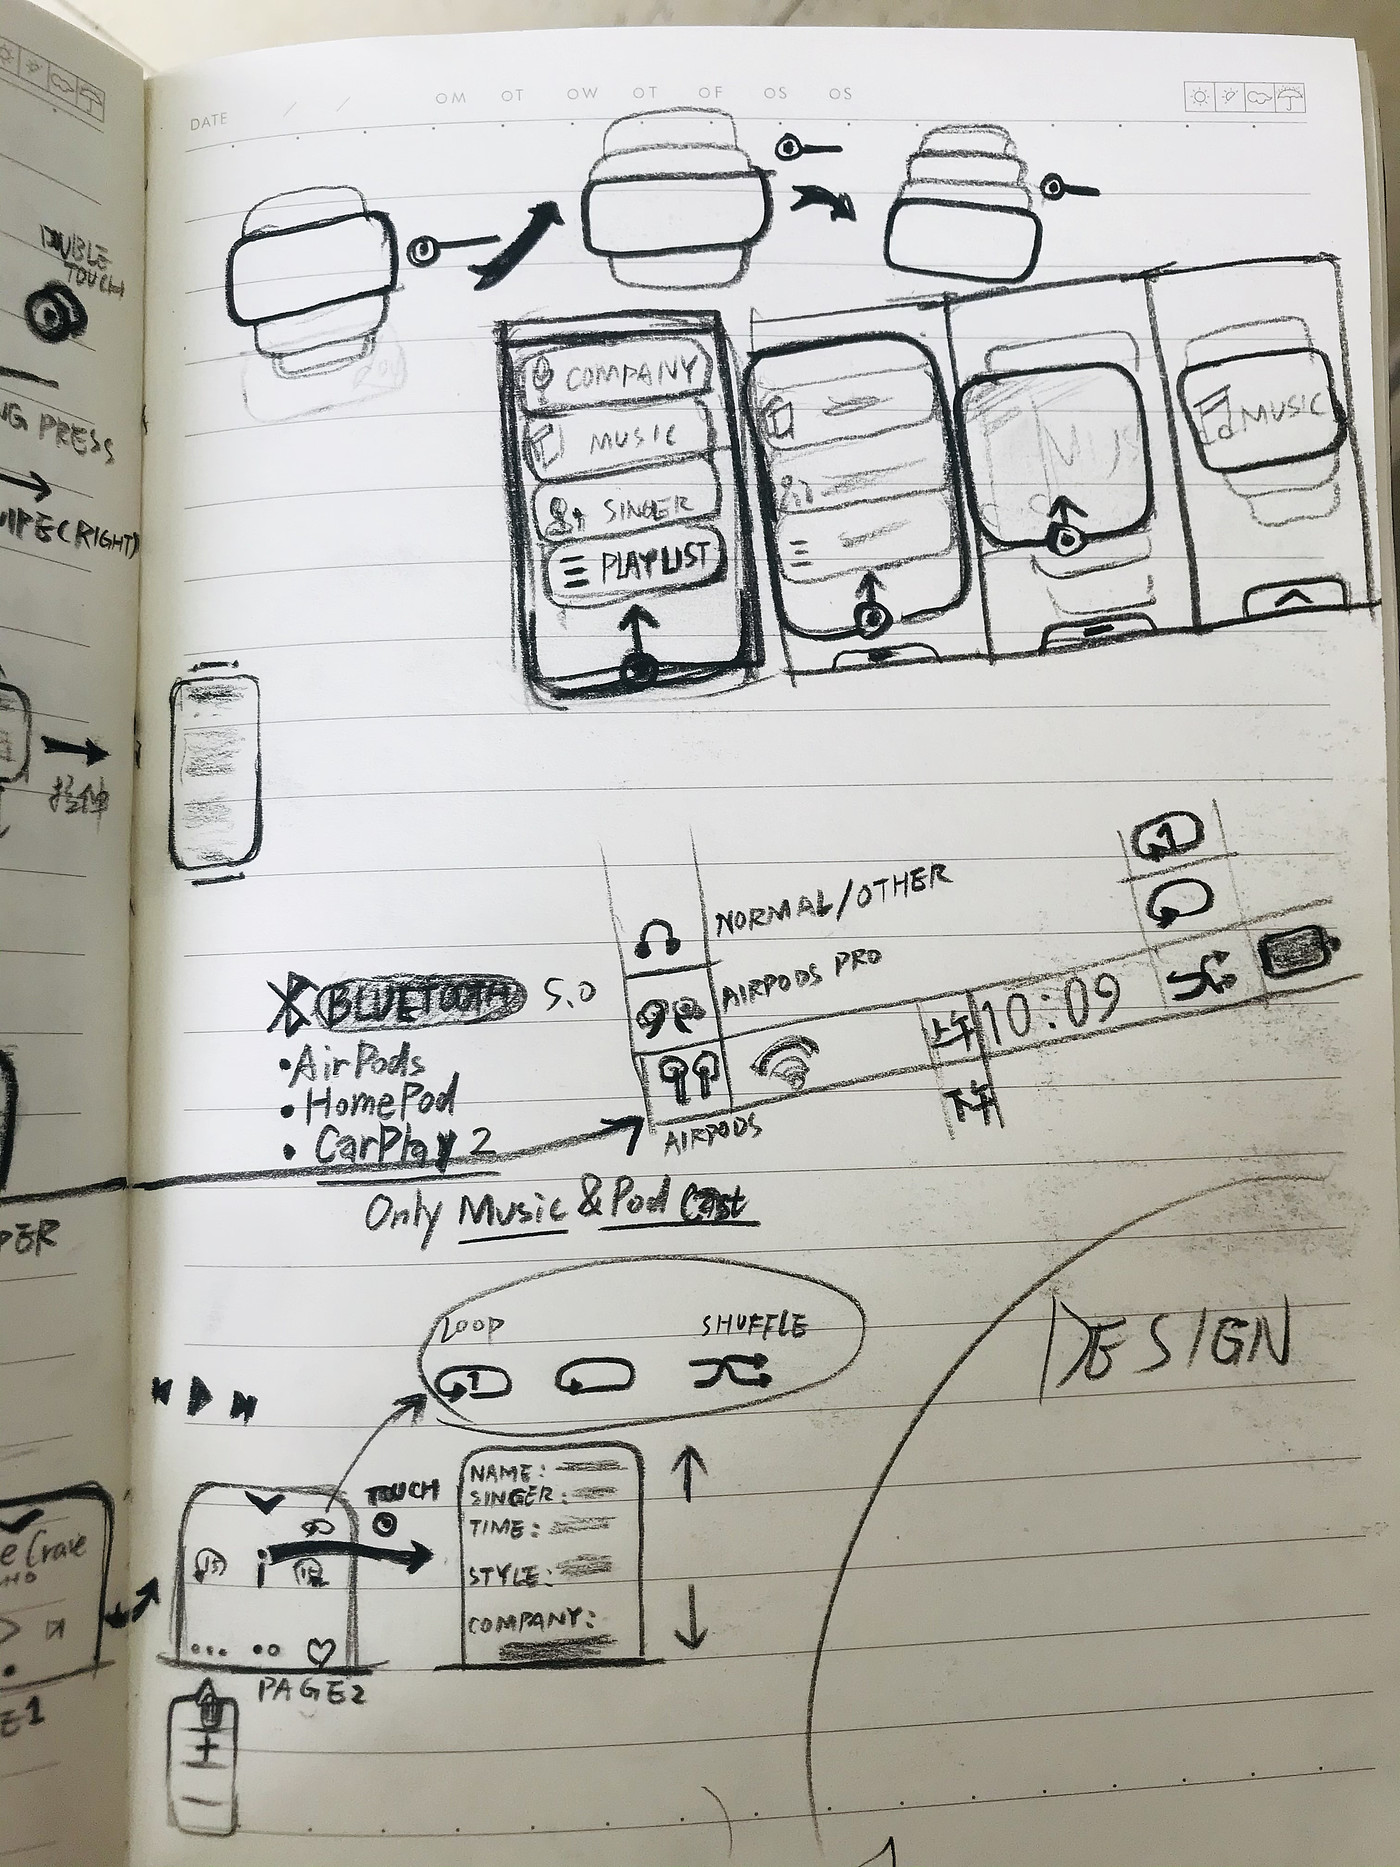 DATE / / OM OT OW OT OF OS OS
TOUCH
NG PRESS
(RIGHT)
COMPANY
MUSIC
SINGER
PLAYLIST
MUS
MUSIC
1
NORMAL/OTHER
AIRPODS PRO
BLUETOOTH 5.0
上午 10:09
下午
AIRPODS
•AirPods
•HomePod
•CarPlay 2
Only Music & PodCast
PER
LOOP SHUFFLE
1
DESIGN
NAME:
SINGER:
TIME:
STYLE:
COMPANY:
TOUCH
i
15
e Crave
PAGE2
E1
+
−